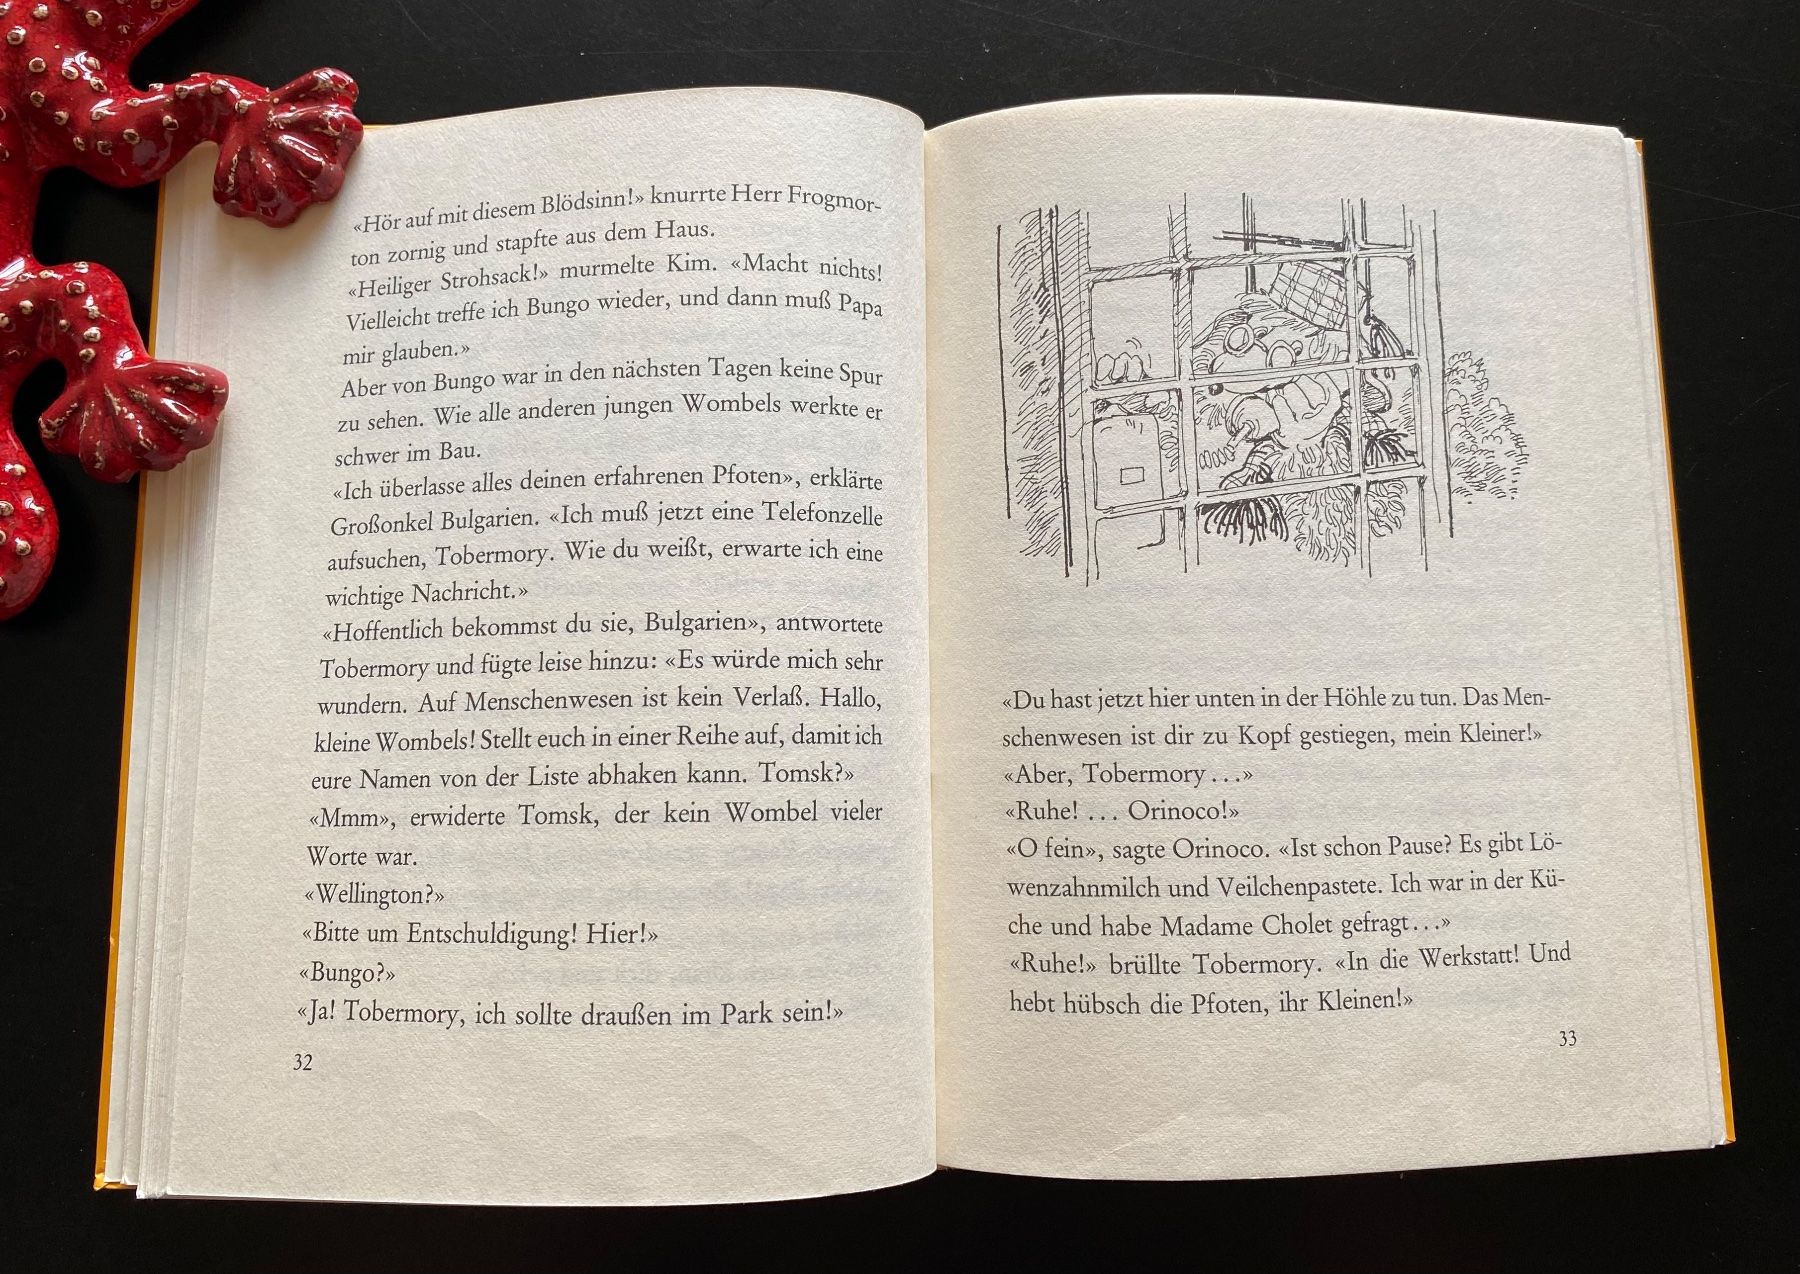 «Hör auf mit diesem Blödsinn!» knurrte Herr Frogmor-
ton zornig und stapfte aus dem Haus.
«Heiliger Strohsack!» murmelte Kim. «Macht nichts!
Vielleicht treffe ich Bungo wieder, und dann muß Papa
mir glauben.»
Aber von Bungo war in den nächsten Tagen keine Spur
zu sehen. Wie alle anderen jungen Wombels werkte er
schwer im Bau.
«Ich überlasse alles deinen erfahrenen Pfoten», erklärte
Großonkel Bulgarien. «Ich muß jetzt eine Telefonzelle
aufsuchen, Tobermory. Wie du weißt, erwarte ich eine
wichtige Nachricht.»
«Hoffentlich bekommst du sie, Bulgarien», antwortete
Tobermory und fügte leise hinzu: «Es würde mich sehr
wundern. Auf Menschenwesen ist kein Verlaß. Hallo,
kleine Wombels! Stellt euch in einer Reihe auf, damit ich
eure Namen von der Liste abhaken kann. Tomsk?»
«Mmm», erwiderte Tomsk, der kein Wombel vieler
Worte war.
«Wellington?»
«Bitte um Entschuldigung! Hier!»
«Bungo?»
«Ja! Tobermory, ich sollte draußen im Park sein!»
32
«Du hast jetzt hier unten in der Höhle zu tun. Das Men-
schenwesen ist dir zu Kopf gestiegen, mein Kleiner!»
«Aber, Tobermory...»
«Ruhe! ... Orinoco!»
«O fein», sagte Orinoco. «Ist schon Pause? Es gibt Lö-
wenzahnmilch und Veilchenpastete. Ich war in der Kü-
che und habe Madame Cholet gefragt...»
«Ruhe!» brüllte Tobermory. «In die Werkstatt! Und
hebt hübsch die Pfoten, ihr Kleinen!»
33